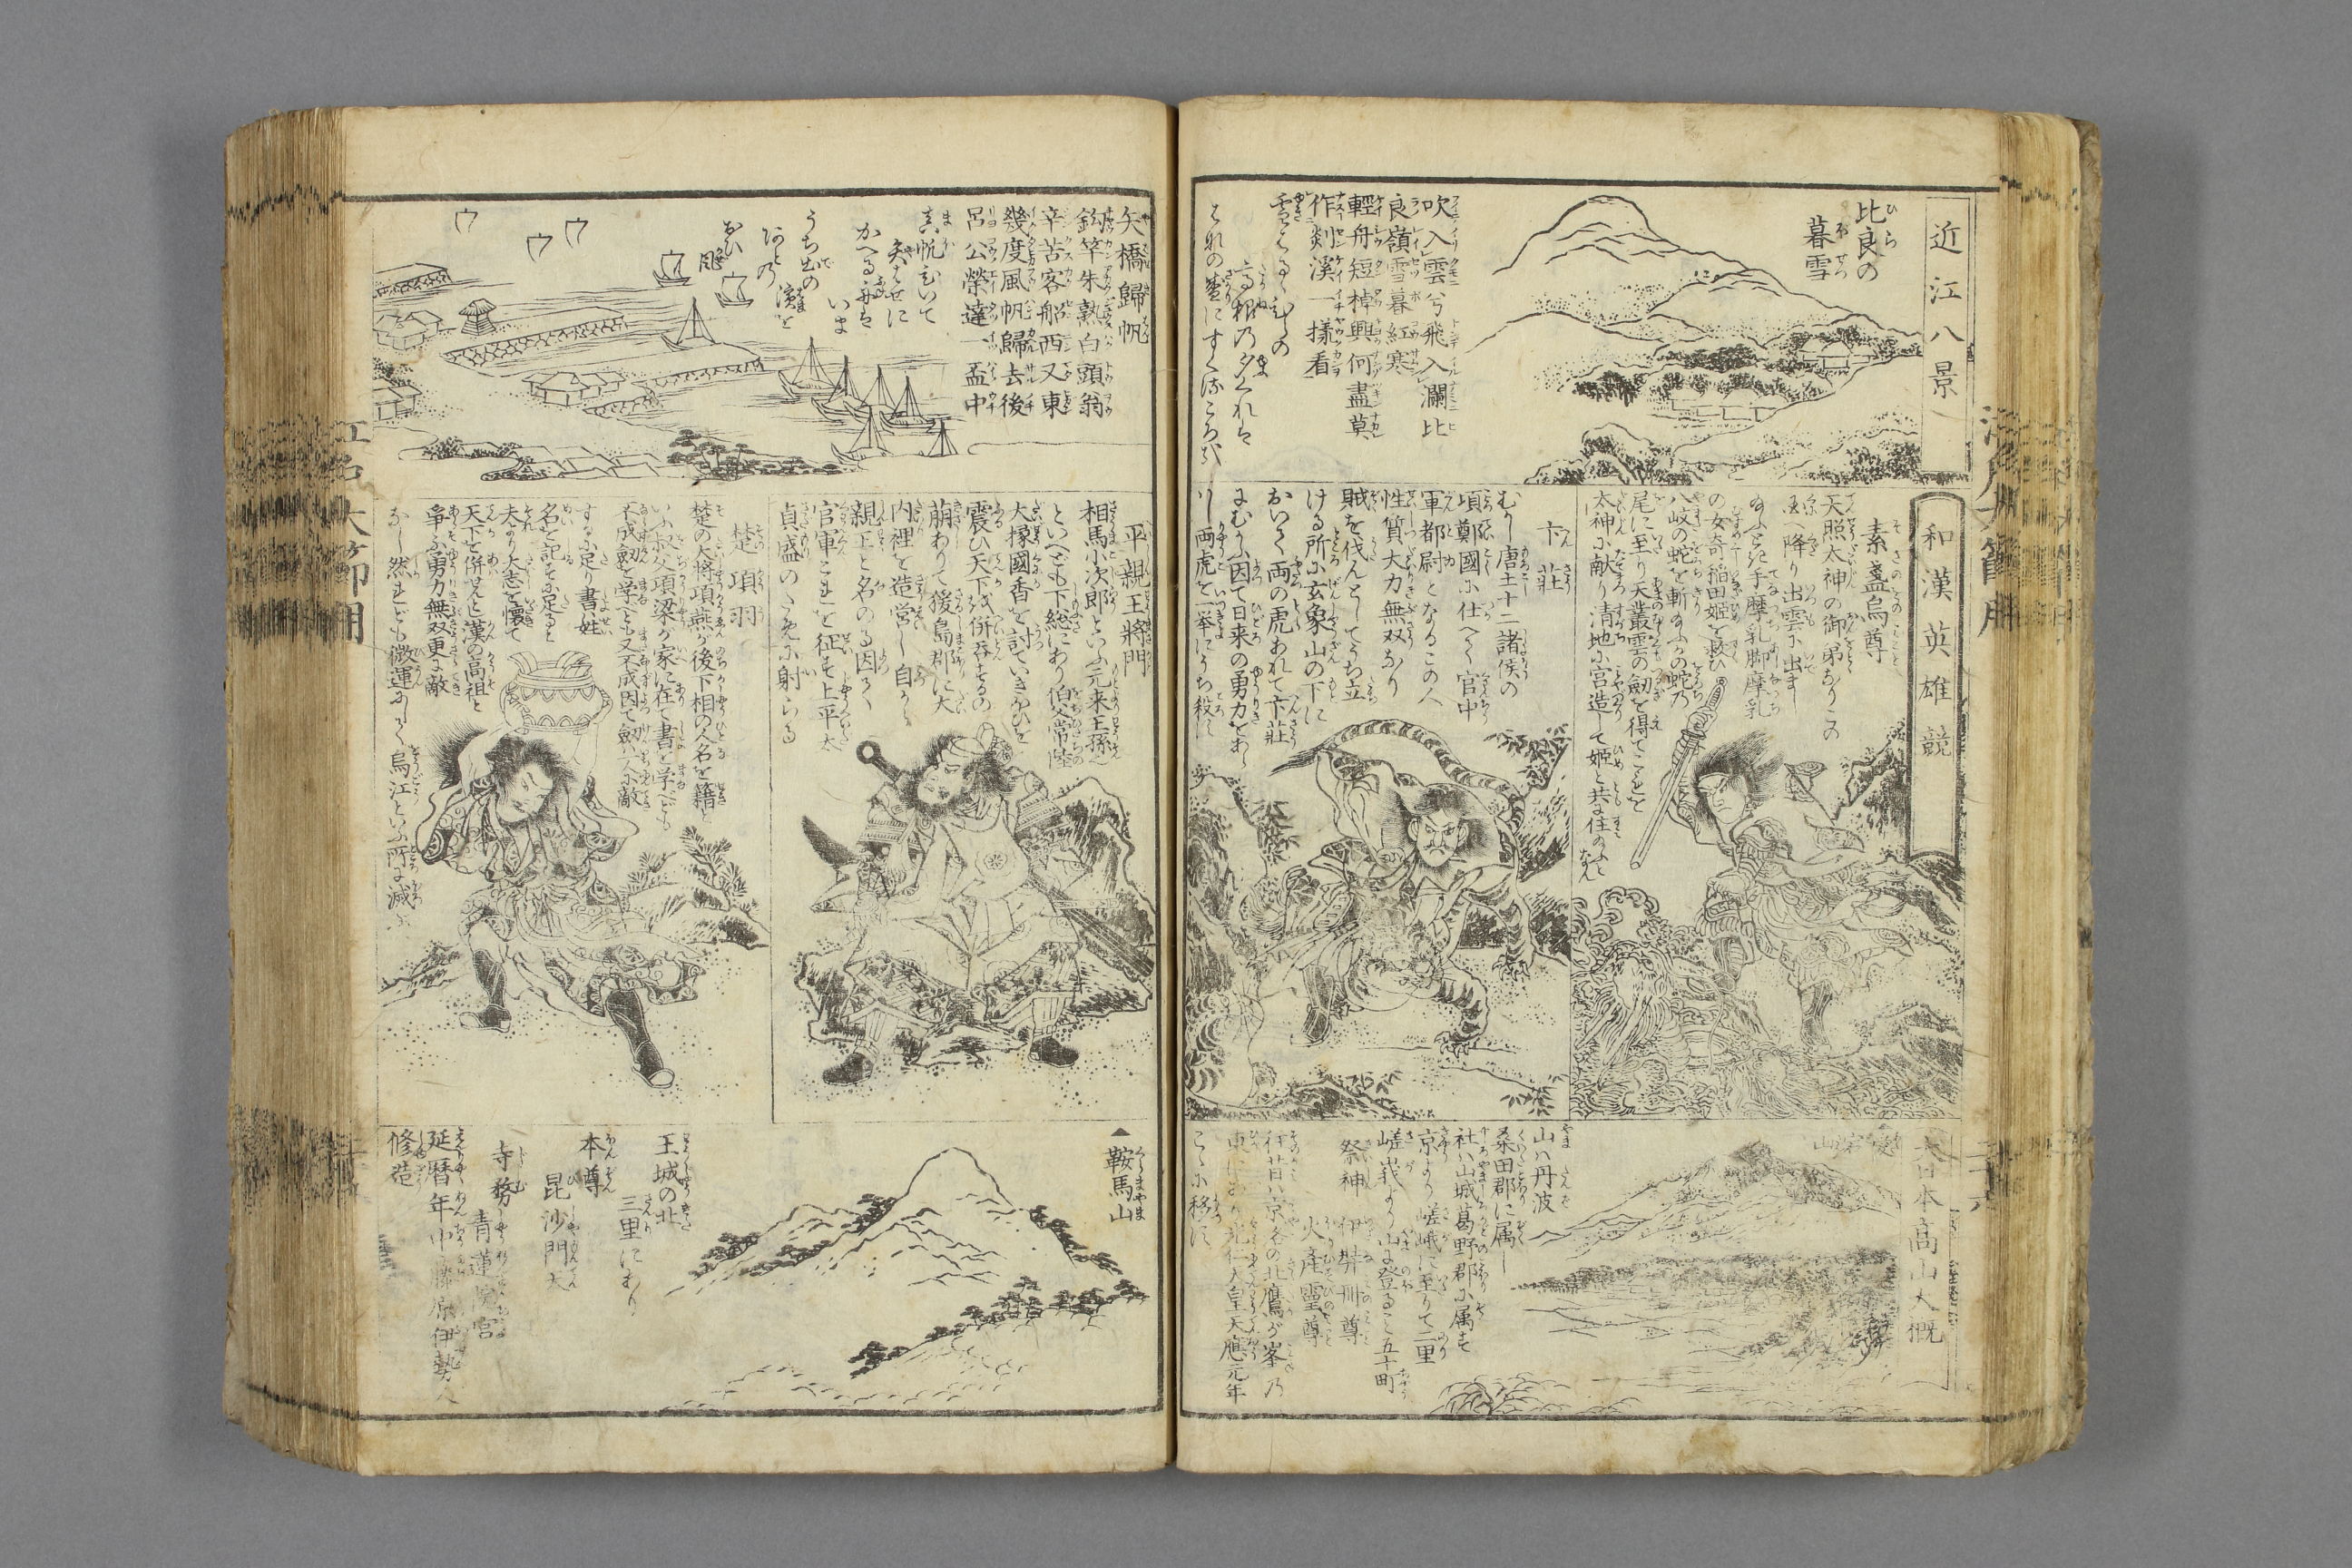 近江八景
比良の
暮雪
吹入雲兮飛入瀾比
良嶺雪暮紅寒
輕舟短棹興何盡莫
作剡溪一様看
雪はるゝひらの
高根の夕くれは
はれの盛にすくるころかな
和漢英雄競
素盞烏尊
天照太神の御弟なりこの
國へ降り出雲に出まし
手摩乳脚摩乳
の女奇稲田姫を救ひ
八岐の蛇を斬
尾に至り天叢雲の劔を得てこれを
太神に献り清地に宮造して姫と共に住
卞莊
むかし唐土十二諸侯の
項鄭國に仕へて官中
軍都尉となるこの人
性質大力無双なり
賊を伐んとしてうち立
ける所に玄象山の下に
おいて両の虎あれて卞莊
にむかふ因て日来の勇力をあらは
し両虎を一挙にうち殺し
大日本高山大概
愛宕山
山ハ丹波
桑田郡に属し
社ハ山城葛野郡に属す
京より嵯峨に至りて二里
嵯峨より山に登ること五十町
祭神 伊弉冊尊
火産霊尊
往昔ハ京名の北鷹が峯の
東にあり光仁天皇天應元年
こゝに移す
矢橋歸帆
釣竿朱熟白頭翁
辛苦客船西又東
幾度風帆歸去後
呂公榮達一盃中
真帆ひいて
矢はせに
かへる舟は
いま
うち出の
濱を
あとの
おひ
風
平親王將門
相馬小次郎といふ元来王孫
といへども下総にあり伯父常陸
大掾國香を討ていきほひを
震ひ天下を併呑するの
萠ありて猨島郡に大
内裡を造営し自から
親王と名のる因て
官軍これを征す上平太
貞盛のために射らる
楚項羽
楚の大将項燕が後下相の人名を籍と
いふ叔父項梁が家に在て書を学べども
不成劔を学べども又不成因て劔ハ一人に敵
するに足り書ハ姓
名を記すに足ると
夫より大志を懐て
天下を併呑と漢の高祖と
争ふ勇力無双更に敵
なし然れども微運にして烏江といふ所に滅ぶ
鞍馬山
王城の北
三里にあり
本尊
毘沙門天
寺務 青蓮院宮
延暦年中藤原伊勢人
修造